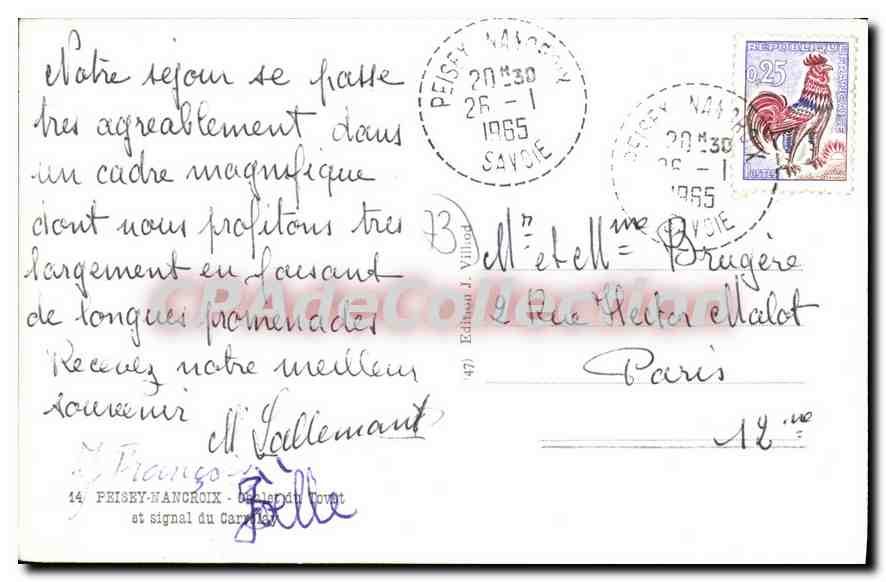 Notre séjour se passe
tres agreablement dans
un cadre magnifique
dont nous profitons tres
largement en faisant
de longues promenades
Recevez notre meilleur
souvenir
M Lallemant
J François
Joëlle
14 PEISEY-NANCROIX - Chalet du Tovet
et signal du
73
47) Edition J. Villiod
PEISEY NANCROIX
20H30
26 - 1
1965
SAVOIE
PEISEY NANCROIX
20H30
26 - 1
1965
SAVOIE
REPUBLIQUE FRANCAISE
0,25
POSTES
Mr et Mme Brugère
2 Rue Hector Malot
Paris
12 me
CPAdeCollection